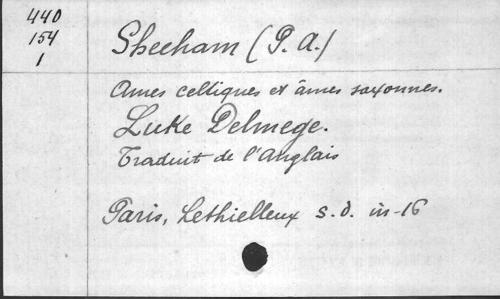 440
154
1
Sheeham (P. A.)
Ames celtiques et âmes saxonnes.
Luke Delmege.
Traduit de l'Anglais
Paris, Lethielleux s.d. in-16